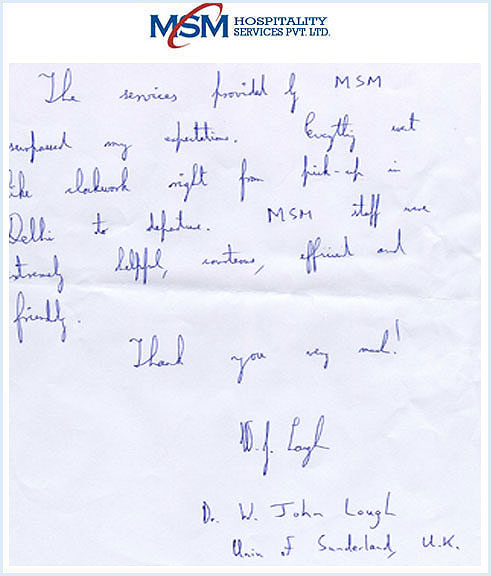 MSM HOSPITALITY
SERVICES PVT. LTD.
The services provided by MSM
surpassed my expectations. Everything went
like clockwork right from pick-up in
Delhi to departure. MSM staff were
extremely helpful, courteous, efficient and
friendly.
Thank you very much!
W. J. Lough
Dr. W. John Lough
Univ of Sunderland, U.K.